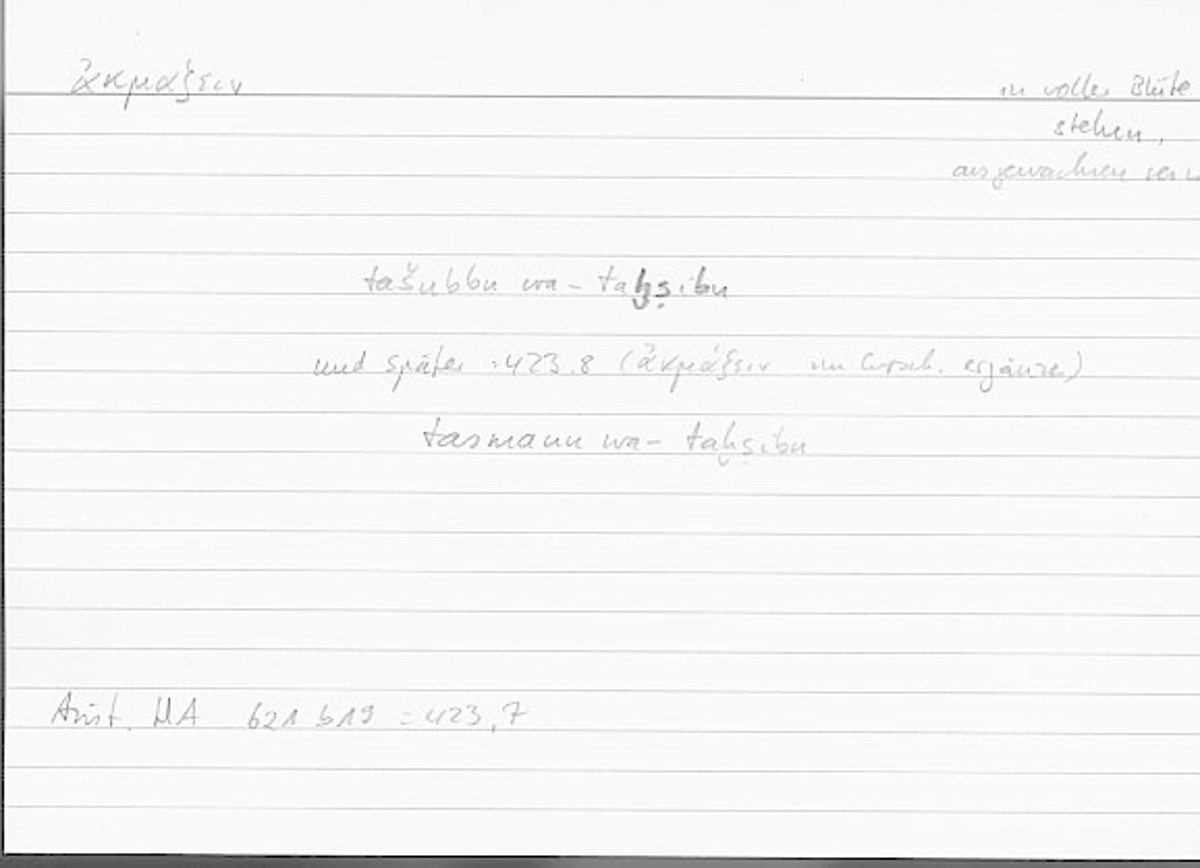 ἀκμάζειν
in voller Blüte
stehen,
ausgewachsen sein
tašubbu wa-taḫṣibu
und später =423.8 (ἀκμάζειν im Griech. ergänzen)
tasmanu wa-taḫṣibu
Arist. HA 621 b19 = 423,7